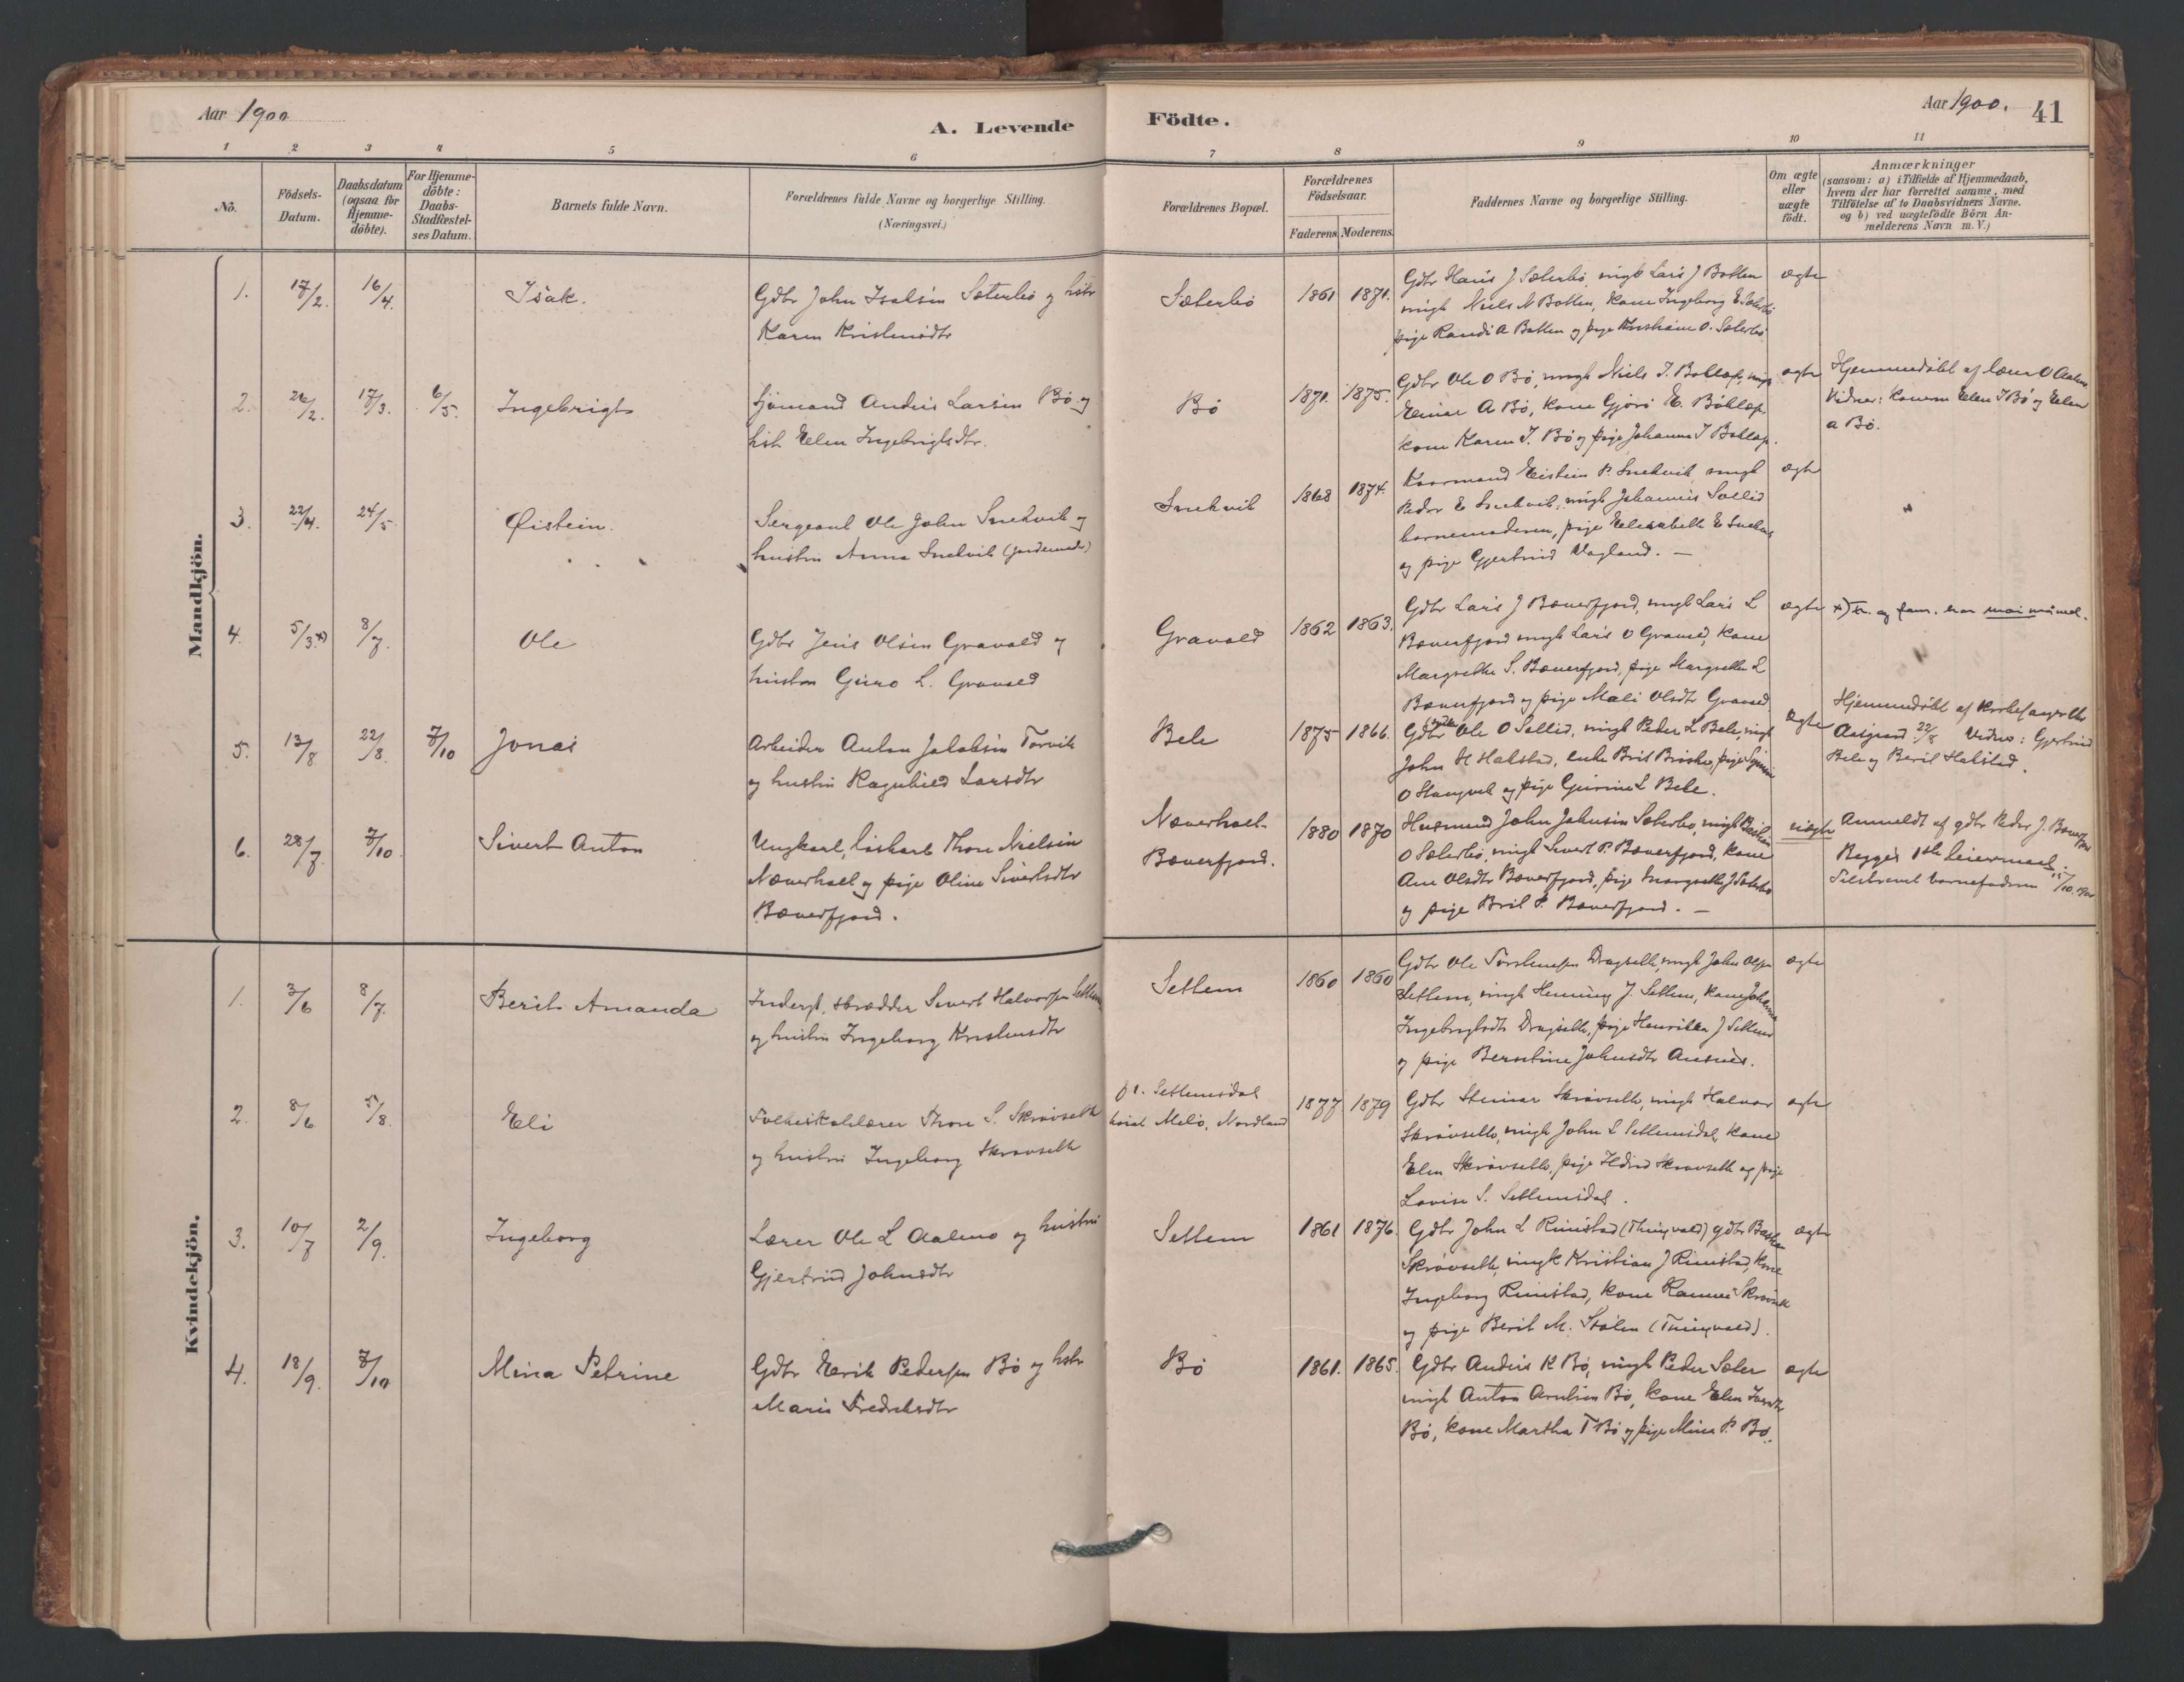 Aar 1900
A. Levende
Födte.
Aar 1900.
41
1 2 3 4 5 6 7 8 9 10 11
No.
Födsels-Datum.
Daabsdatum (ogsaa for Hjemme-döbte).
For Hjemme-döbte: Daabs-Stadfæstel-ses Datum.
Barnets fulde Navn.
Forældrenes fulde Navne og borgerlige Stilling.
(Næringsvei.)
Forældrenes Bopæl.
Forældrenes Födselsaar.
Faderens. Moderens.
Faddernes Navne og borgerlige Stilling.
Om ægte eller uægte födt.
Anmærkninger
(saasom: a) i Tilfælde af Hjemmedaab,
hvem der har forrettet samme, med
Tilföielse af to Daabsvidners Navne.
og b) ved uægtefödte Börn An-
melderens Navn m. V.)
Mandkjön.
1. 17/2. 16/4. Isak. Gdbr John Isaksen Sæterbø og hstr
Karen Kristensdtr
Sæterbø 1861 1871.
Gdbr Hans J Sæterbø, ungk Lars J Botten
ungk Niels N Botten, kone Ingeborg E Sæterbø
pige Randi A Botten og pige Kristiane O. Sæterbø
ægte
2. 26/2. 17/3. 6/5. Ingebrigt Sjømand Anders Larsen Bø og
hstr Elen Ingebrigtsdtr.
Bø 1871. 1875.
Gdbr Ole O Bø, ungk Niels I. Bøklep, ungk
Einar A Bø, kone Gjøro E. Bøklep
kone Karen I. Bø og pige Johanna I Bøklep.
ægte
Hjemmedøbt af lærer O Aalmo.
Vidner: konerne Elen I Bø og Elen
A Bø.
3. 22/4. 24/5. Øistein. Sergeant Ole John Snekvik og
hustru Anna Snekvik (jordemoder)
Snekvik 1868 1874.
Kaarmand Eistein P. Snekvik, ungk
Peder E Snekvik, ungk Johannes Sollid
barnemoderen, pige Elisabeth E Snekvik
og pige Gjertrud Vagland. —
ægte
4. 5/3.x) 8/7. Ole Gdbr Jens Olsen Gravald og
hustru Guro L. Gravald
Gravald 1862 1863.
Gdbr Lars J Bæverfjord, ungk Lars L
Bæverfjord ungk Lars O Gravald, kone
Margrethe S. Bæverfjord, pige Margrethe L
Bæverfjord og pige Mali Olsdtr Gravald.
ægte
5. 13/8 22/8. 7/10 Jonas Arbeider Anton Jakobsen Torvik
og hustru Ragnhild Larsdtr
Bele 1875 1866.
Gdbr Ole O Sollid, ungk Peder L Bele, ungk
John H Halstad, enke Brit
O Stangvik og pige Gurine L Bele.
ægte
Hjemmedøbt af kirkesanger
22/8 Vidner: Gjertrud
Bele og Beret Halstad.
6. 28/7. 7/10 Sivert Anton Ungkarl, løskarl Thore Nielsen
Næverholt og pige Oline Sivertsdtr
Bæverfjord.
Næverholt-
Bæverfjord. 1880 1870
Husmand John Johnsen Sæterbø, ungk
O Sæterbø, ungk Sivert P. Bæverfjord, kone
Ane Olsdtr Bæverfjord, pige Margrethe J Sæterbø
og pige Brit P. Bæverfjord. —
uægte
Anmeldt af gdbr Peder J. Bæverfjord
Begges 1ste leiermaal.
Tilskrevet barnefaderen 15/10. 1900
Kvindekjön.
1. 3/6 8/7. Berit Amanda Inderst, skrædder Sivert Halvorsen Settem
og hustru Ingeborg Kristensdtr
Settem 1860 1860
Gdbr Ole Torstensen Dragseth, ungk John Olsen
Settem, ungk Henning J. Settem, kone Johanna
Ingebrigtsdtr Dragseth, pige Henrikka J Settem
og pige Berntine Johnsdtr Aasnes.
ægte
2. 8/6 5/8. Eli Folkeskolelærer Thore S. Skrøvseth
og hustru Ingeborg Skrøvseth
Settemsdal
Melø, Nordland 1877 1879
Gdbr Steinar Skrøvseth, ungk Halvor
Skrøvseth, ungk John L Settemsdal, kone
Elen Skrøvseth, pige Ildrid Skrøvseth og pige
Lovise S. Settemsdal.
ægte
3. 10/7 2/9. Ingeborg Lærer Ole L Aalmo og hustru
Gjertrud Johnsdtr
Settem 1861 1876.
Gdbr John L Rimstad (Thingvold) gdbr
Skrøvseth, ungk Kristian J Rimstad, kone
Ingeborg Rimstad, kone Skrøvseth
og pige Berit M. Stølen (Thingvold).
ægte
4. 18/9. 7/10 Mina Petrine Gdbr Eerik Pedersen Bø og hstr
Marie Fredriksdtr
Bø 1861. 1865.
Gdbr Anders K Bø, ungk Peder Sæter
ungk Anton Arntsen Bø, kone Elen
Bø, kone Martha T Bø og pige Mina P. Bø.
ægte